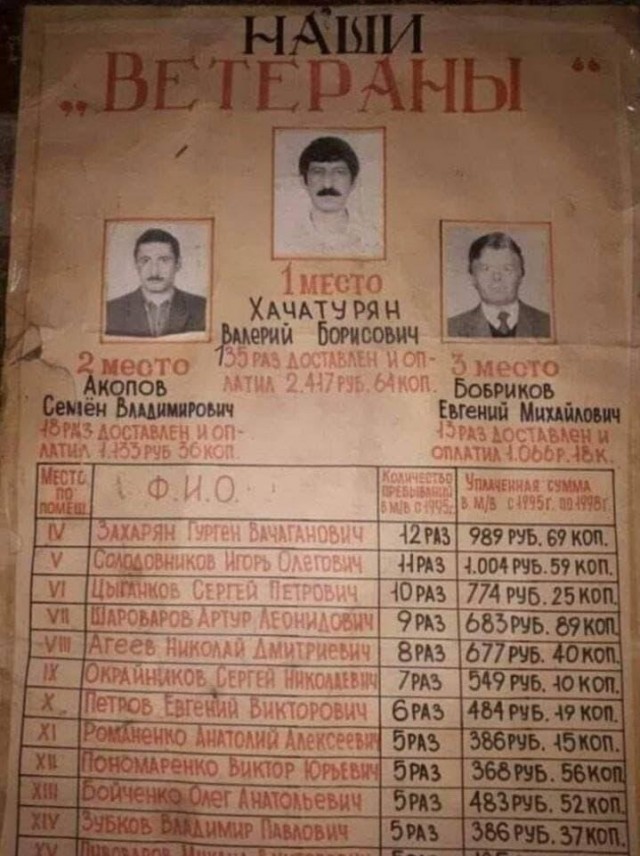 НАШИ
„ВЕТЕРАНЫ“
1 МЕСТО
ХАЧАТУРЯН
ВАЛЕРИЙ БОРИСОВИЧ
135 РАЗ ДОСТАВЛЕН И ОП-
ЛАТИЛ 2.417 РУБ. 64 КОП.
2 МЕСТО
АКОПОВ
СЕМЁН ВЛАДИМИРОВИЧ
18 РАЗ ДОСТАВЛЕН И ОП-
ЛАТИЛ 1.133 РУБ 36 КОП.
3 МЕСТО
БОБРИКОВ
ЕВГЕНИЙ МИХАЙЛОВИЧ
13 РАЗ ДОСТАВЛЕН И
ОПЛАТИЛ 1.066 Р. 18 К.
МЕСТО ПО ПОМЕЩ. Ф.И.О. КОЛИЧЕСТВО ПРЕБЫВАНИЙ В М/В С 1995г. УПЛАЧЕННАЯ СУММА В М/В С 1995г. ПО 1998г
IV ЗАХАРЯН ГУРГЕН ВАЧАГАНОВИЧ 12 РАЗ 989 РУБ. 69 КОП.
V СОЛОДОВНИКОВ ИГОРЬ ОЛЕГОВИЧ 11 РАЗ 1.004 РУБ. 59 КОП.
VI ЦЫГАНКОВ СЕРГЕЙ ПЕТРОВИЧ 10 РАЗ 774 РУБ. 25 КОП.
VII ШАРОВАРОВ АРТУР ЛЕОНИДОВИЧ 9 РАЗ 683 РУБ. 89 КОП.
VIII АГЕЕВ НИКОЛАЙ ДМИТРИЕВИЧ 8 РАЗ 677 РУБ. 40 КОП.
IX ОКРАЙНИКОВ СЕРГЕЙ НИКОЛАЕВИЧ 7 РАЗ 549 РУБ. 10 КОП.
X ПЕТРОВ ЕВГЕНИЙ ВИКТОРОВИЧ 6 РАЗ 484 РУБ. 19 КОП.
XI РОМАНЕНКО АНАТОЛИЙ АЛЕКСЕЕВИЧ 5 РАЗ 386 РУБ. 15 КОП.
XII ПОНОМАРЕНКО ВИКТОР ЮРЬЕВИЧ 5 РАЗ 368 РУБ. 56 КОП
XIII БОЙЧЕНКО ОЛЕГ АНАТОЛЬЕВИЧ 5 РАЗ 483 РУБ. 52 КОП.
XIV ЗУБКОВ ВЛАДИМИР ПАВЛОВИЧ 5 РАЗ 386 РУБ. 37 КОП.
XV